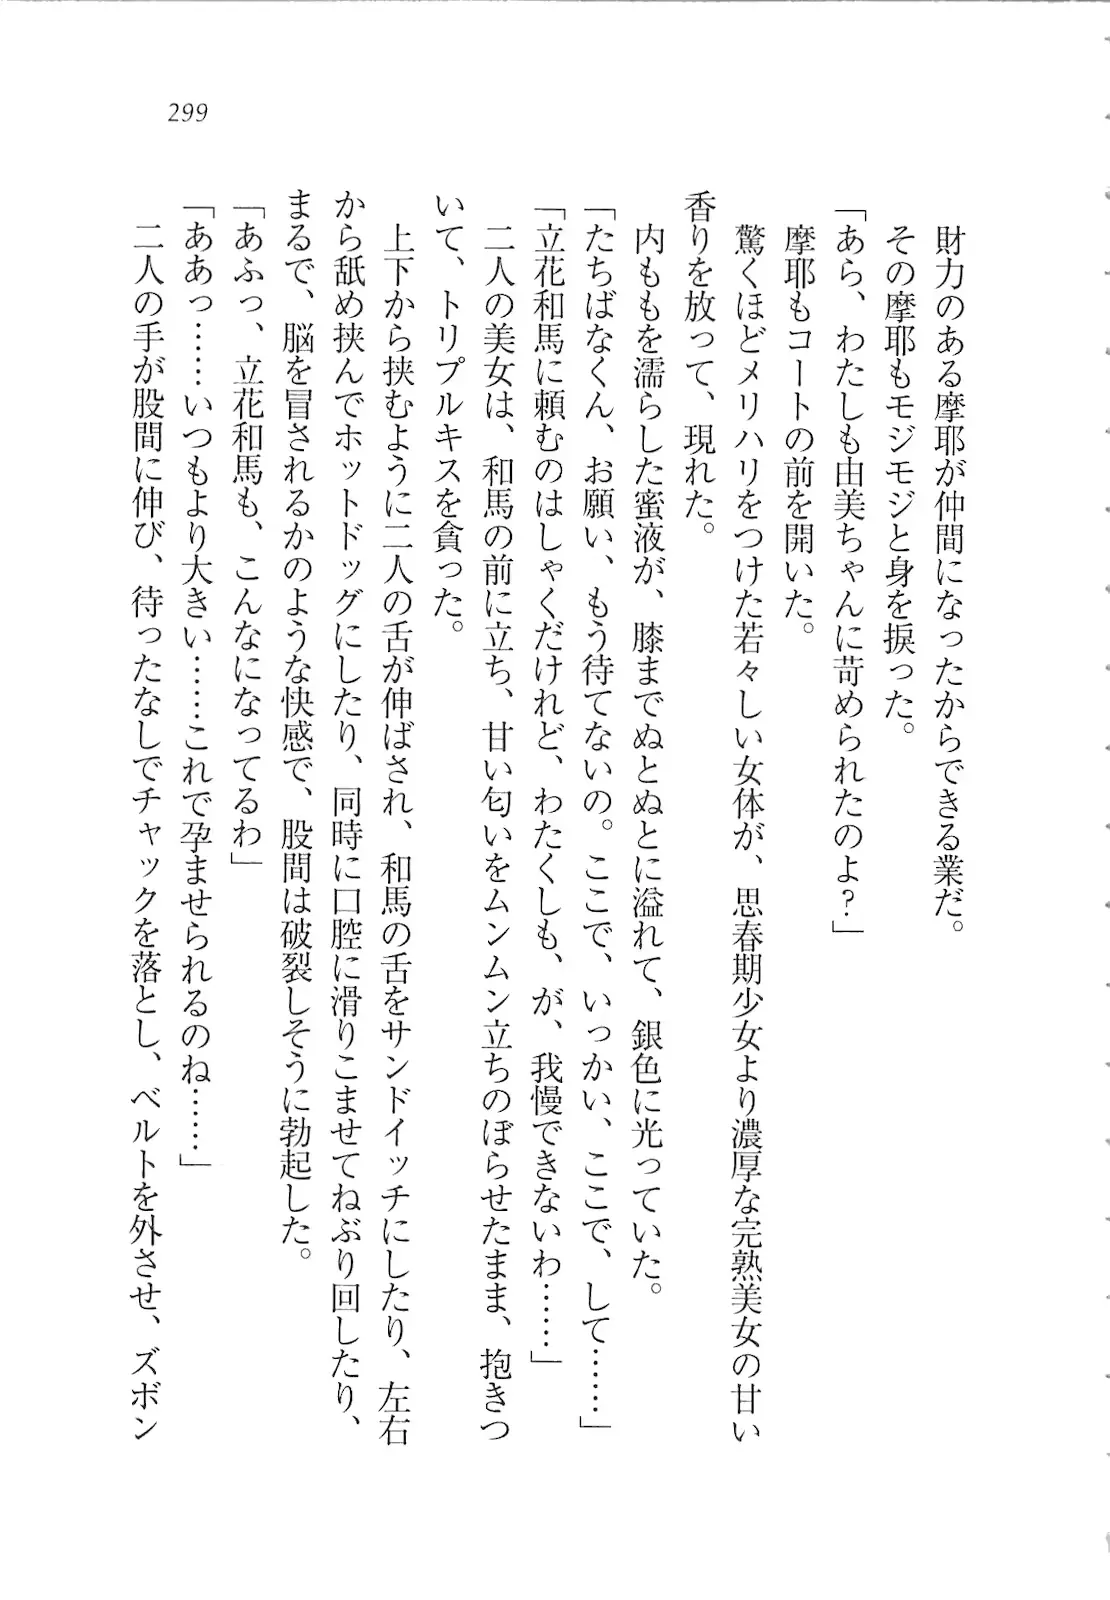 299
財力のある摩耶が仲間になったからできる業だ。
その摩耶もモジモジと身を捩った。
「あら、わたしも由美ちゃんに苛められたのよ?」
摩耶もコートの前を開いた。
驚くほどメリハリをつけた若々しい女体が、思春期少女より濃厚な完熟美女の甘い
香りを放って、現れた。
内ももを濡らした蜜液が、膝までぬとぬとに溢れて、銀色に光っていた。
「たちばなくん、お願い、もう待てないの。ここで、いっかい、ここで、して……」
「立花和馬に頼むのはしゃくだけれど、わたくしも、が、我慢できないわ……」
二人の美女は、和馬の前に立ち、甘い匂いをムンムン立ちのぼらせたまま、抱きつ
いて、トリプルキスを貪った。
上下から挟むように二人の舌が伸ばされ、和馬の舌をサンドイッチにしたり、左右
から舐め挟んでホットドッグにしたり、同時に口腔に滑りこませてねぶり回したり、
まるで、脳を冒されるかのような快感で、股間は破裂しそうに勃起した。
「あふっ、立花和馬も、こんなになってるわ」
「ああっ……いつもより大きい……これで孕ませられるのね……」
二人の手が股間に伸び、待ったなしでチャックを落とし、ベルトを外させ、ズボン